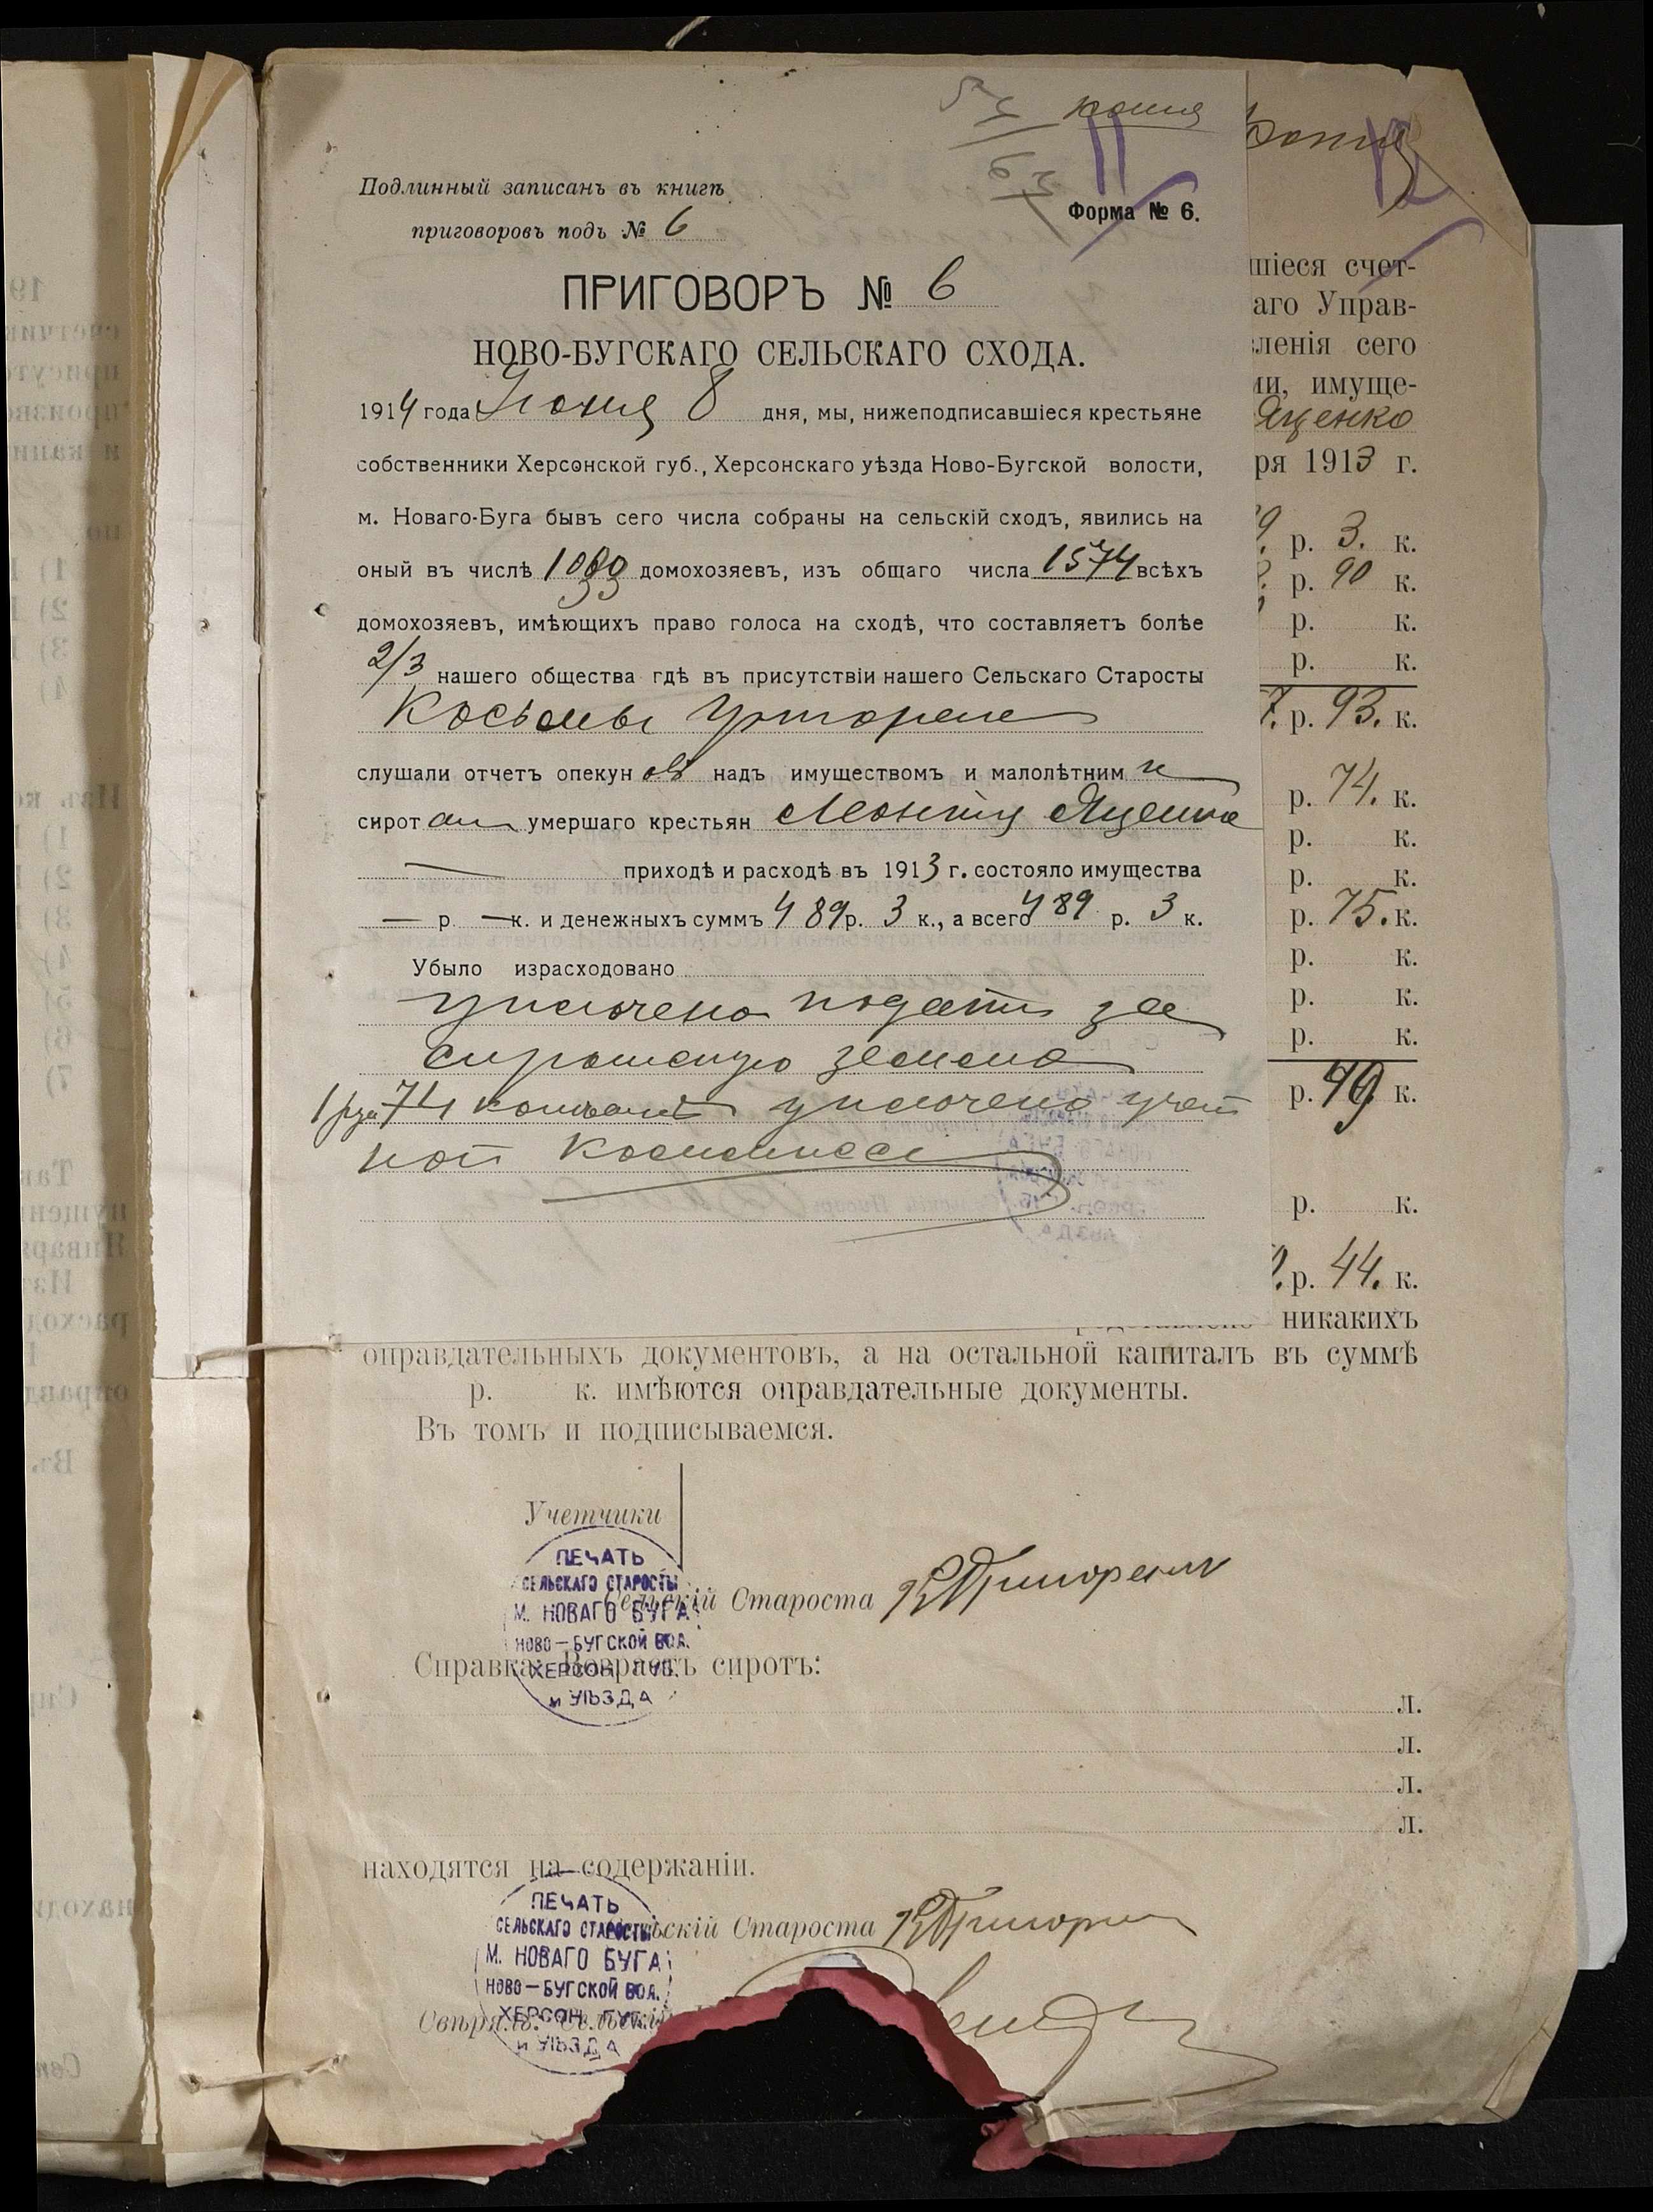 копія
Подлинный записанъ въ книгѣ
приговоровъ подъ № 6
11
Форма № 6.
ПРИГОВОРЪ № 6
НОВО-БУГСКАГО СЕЛЬСКАГО СХОДА.
1914 года Іюня 8 дня, мы, нижеподписавшіеся крестьяне
собственники Херсонской губ., Херсонскаго уѣзда Ново-Бугской волости,
м. Новаго-Буга бывъ сего числа собраны на сельскій сходъ, явились на
оный въ числѣ домохозяевъ, изъ общаго числа 1574 всѣхъ
домохозяевъ, имѣющихъ право голоса на сходѣ, что составляетъ болѣе
2/3 нашего общества гдѣ въ присутствіи нашего Сельскаго Старосты
Косьмы
слушали отчетъ опекуновъ надъ имуществомъ и малолѣтними
сиротами умершаго крестьян Леонтія Яценко
— приходѣ и расходѣ въ 1913 г. состояло имущества
— р. — к. и денежныхъ суммъ 489 р. 3 к., а всего 489 р. 3 к.
Убыло израсходовано
уплочено подати за
сиротскую землю
1 руб 74 копѣйки уплочено учет
ной
копія
12
шіеся счет-
аго Управ-
ленія сего
ми, имуще-
Яценко
ря 1913 г.
9. р. 3. к.
р. 90 к.
р. к.
р. к.
7. р. 93. к.
р. 74. к.
р. к.
р. к.
р. 75. к.
р. к.
р. к.
р. к.
р. 49 к.
р. к.
р. 44. к.
никакихъ
оправдательныхъ документовъ, а на остальной капиталъ въ суммѣ
р. к. имѣются оправдательные документы.
Въ томъ и подписываемся.
Учетчики
ПЕЧАТЬ
СЕЛЬСКАГО СТАРОСТЫ
М. НОВАГО БУГА
НОВО-БУГСКОЙ ВОЛ.
ХЕРСОН. ГУБ.
и УѢЗДА
Сельскій Староста
Справка: Возрастъ сиротъ:
л.
л.
л.
л.
находятся на содержаніи.
ПЕЧАТЬ
СЕЛЬСКАГО СТАРОСТЫ
М. НОВАГО БУГА
НОВО-БУГСКОЙ ВОЛ.
ХЕРСОН. ГУБ.
и УѢЗДА
Сельскій Староста
Свѣрялъ: Сельскій